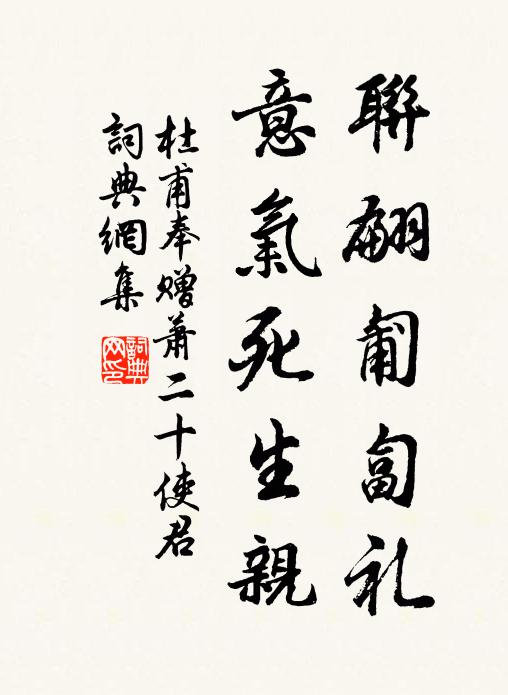 聯翩匍匐礼
意氣死生親
杜甫奉赠蕭二十使君
詞典網集
詞典網印